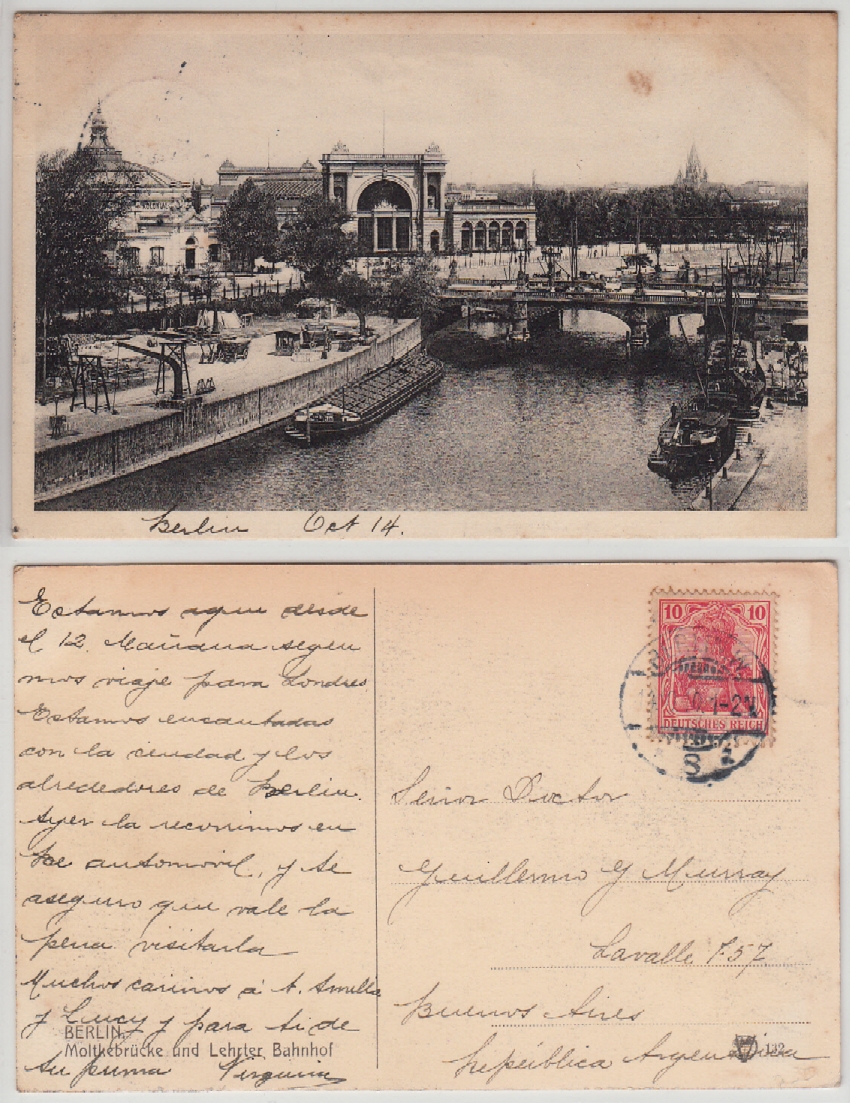 Berlin Oct 14.
Estamos aqui desde
el 12. Mañana segui
mos viaje para Londres
Estamos encantadas
con la ciudad y los
alrededores de Berlin.
Ayer la recorrimos en
automovil, y te
aseguro que vale la
pena visitarla
Muchos cariños á t. Amelia
y Lucy y para ti de
tu prima Virginia
BERLIN,
Moltkebrücke und Lehrter Bahnhof
10 10
DEUTSCHES REICH
1-2N
8
Señor Doctor
Guillermo G Murray
Lavalle 757
Buenos Aires
República Argentina
132